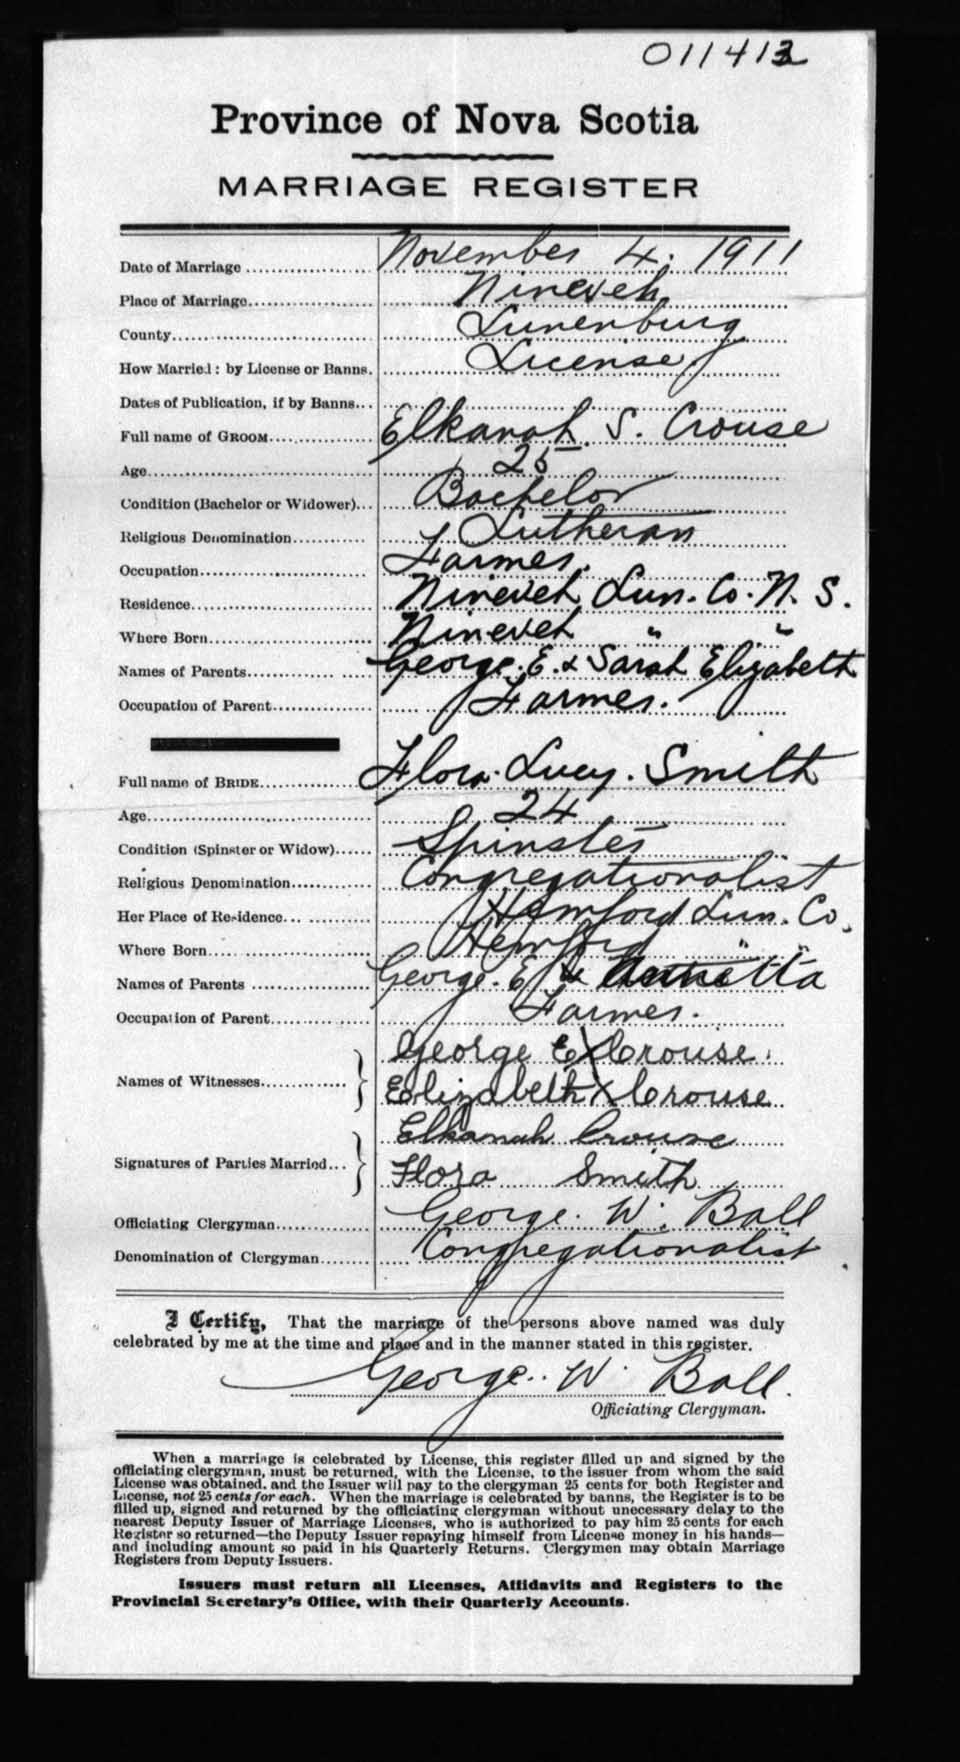 011413
Province of Nova Scotia
MARRIAGE REGISTER
Date of Marriage November 4. 1911
Place of Marriage Nineveh
County Lunenburg
How Married: by License or Banns. License
Dates of Publication, if by Banns
Full name of GROOM Elkanah S. Crouse
Age 25
Condition (Bachelor or Widower) Bachelor
Religious Denomination Lutheran
Occupation Farmer.
Residence Nineveh Lun. Co. N. S.
Where Born Nineveh " "
Names of Parents George. E. & Sarah Elizabeth
Occupation of Parent Farmer.
Full name of BRIDE Flora. Lucy. Smith
Age 24
Condition (Spinster or Widow) Spinster
Religious Denomination Congregationalist
Her Place of Residence Hemford Lun. Co.
Where Born Hemford " "
Names of Parents George. E. &
Occupation of Parent Farmer.
Names of Witnesses George E X Crouse
Elizabeth X Crouse
Signatures of Parties Married Elkanah Crouse
Flora Smith
Officiating Clergyman George. W. Ball
Denomination of Clergyman Congregationalist
I Certify, That the marriage of the persons above named was duly
celebrated by me at the time and place and in the manner stated in this register.
George. W. Ball.
Officiating Clergyman.
When a marriage is celebrated by License, this register filled up and signed by the
officiating clergyman, must be returned, with the License, to the issuer from whom the said
License was obtained, and the Issuer will pay to the clergyman 25 cents for both Register and
License, not 25 cents for each. When the marriage is celebrated by banns, the Register is to be
filled up, signed and returned by the officiating clergyman without unecessary delay to the
nearest Deputy Issuer of Marriage Licenses, who is authorized to pay him 25 cents for each
Register so returned—the Deputy Issuer repaying himself from License money in his hands—
and including amount so paid in his Quarterly Returns. Clergymen may obtain Marriage
Registers from Deputy Issuers.
Issuers must return all Licenses, Affidavits and Registers to the
Provincial Secretary's Office, with their Quarterly Accounts.